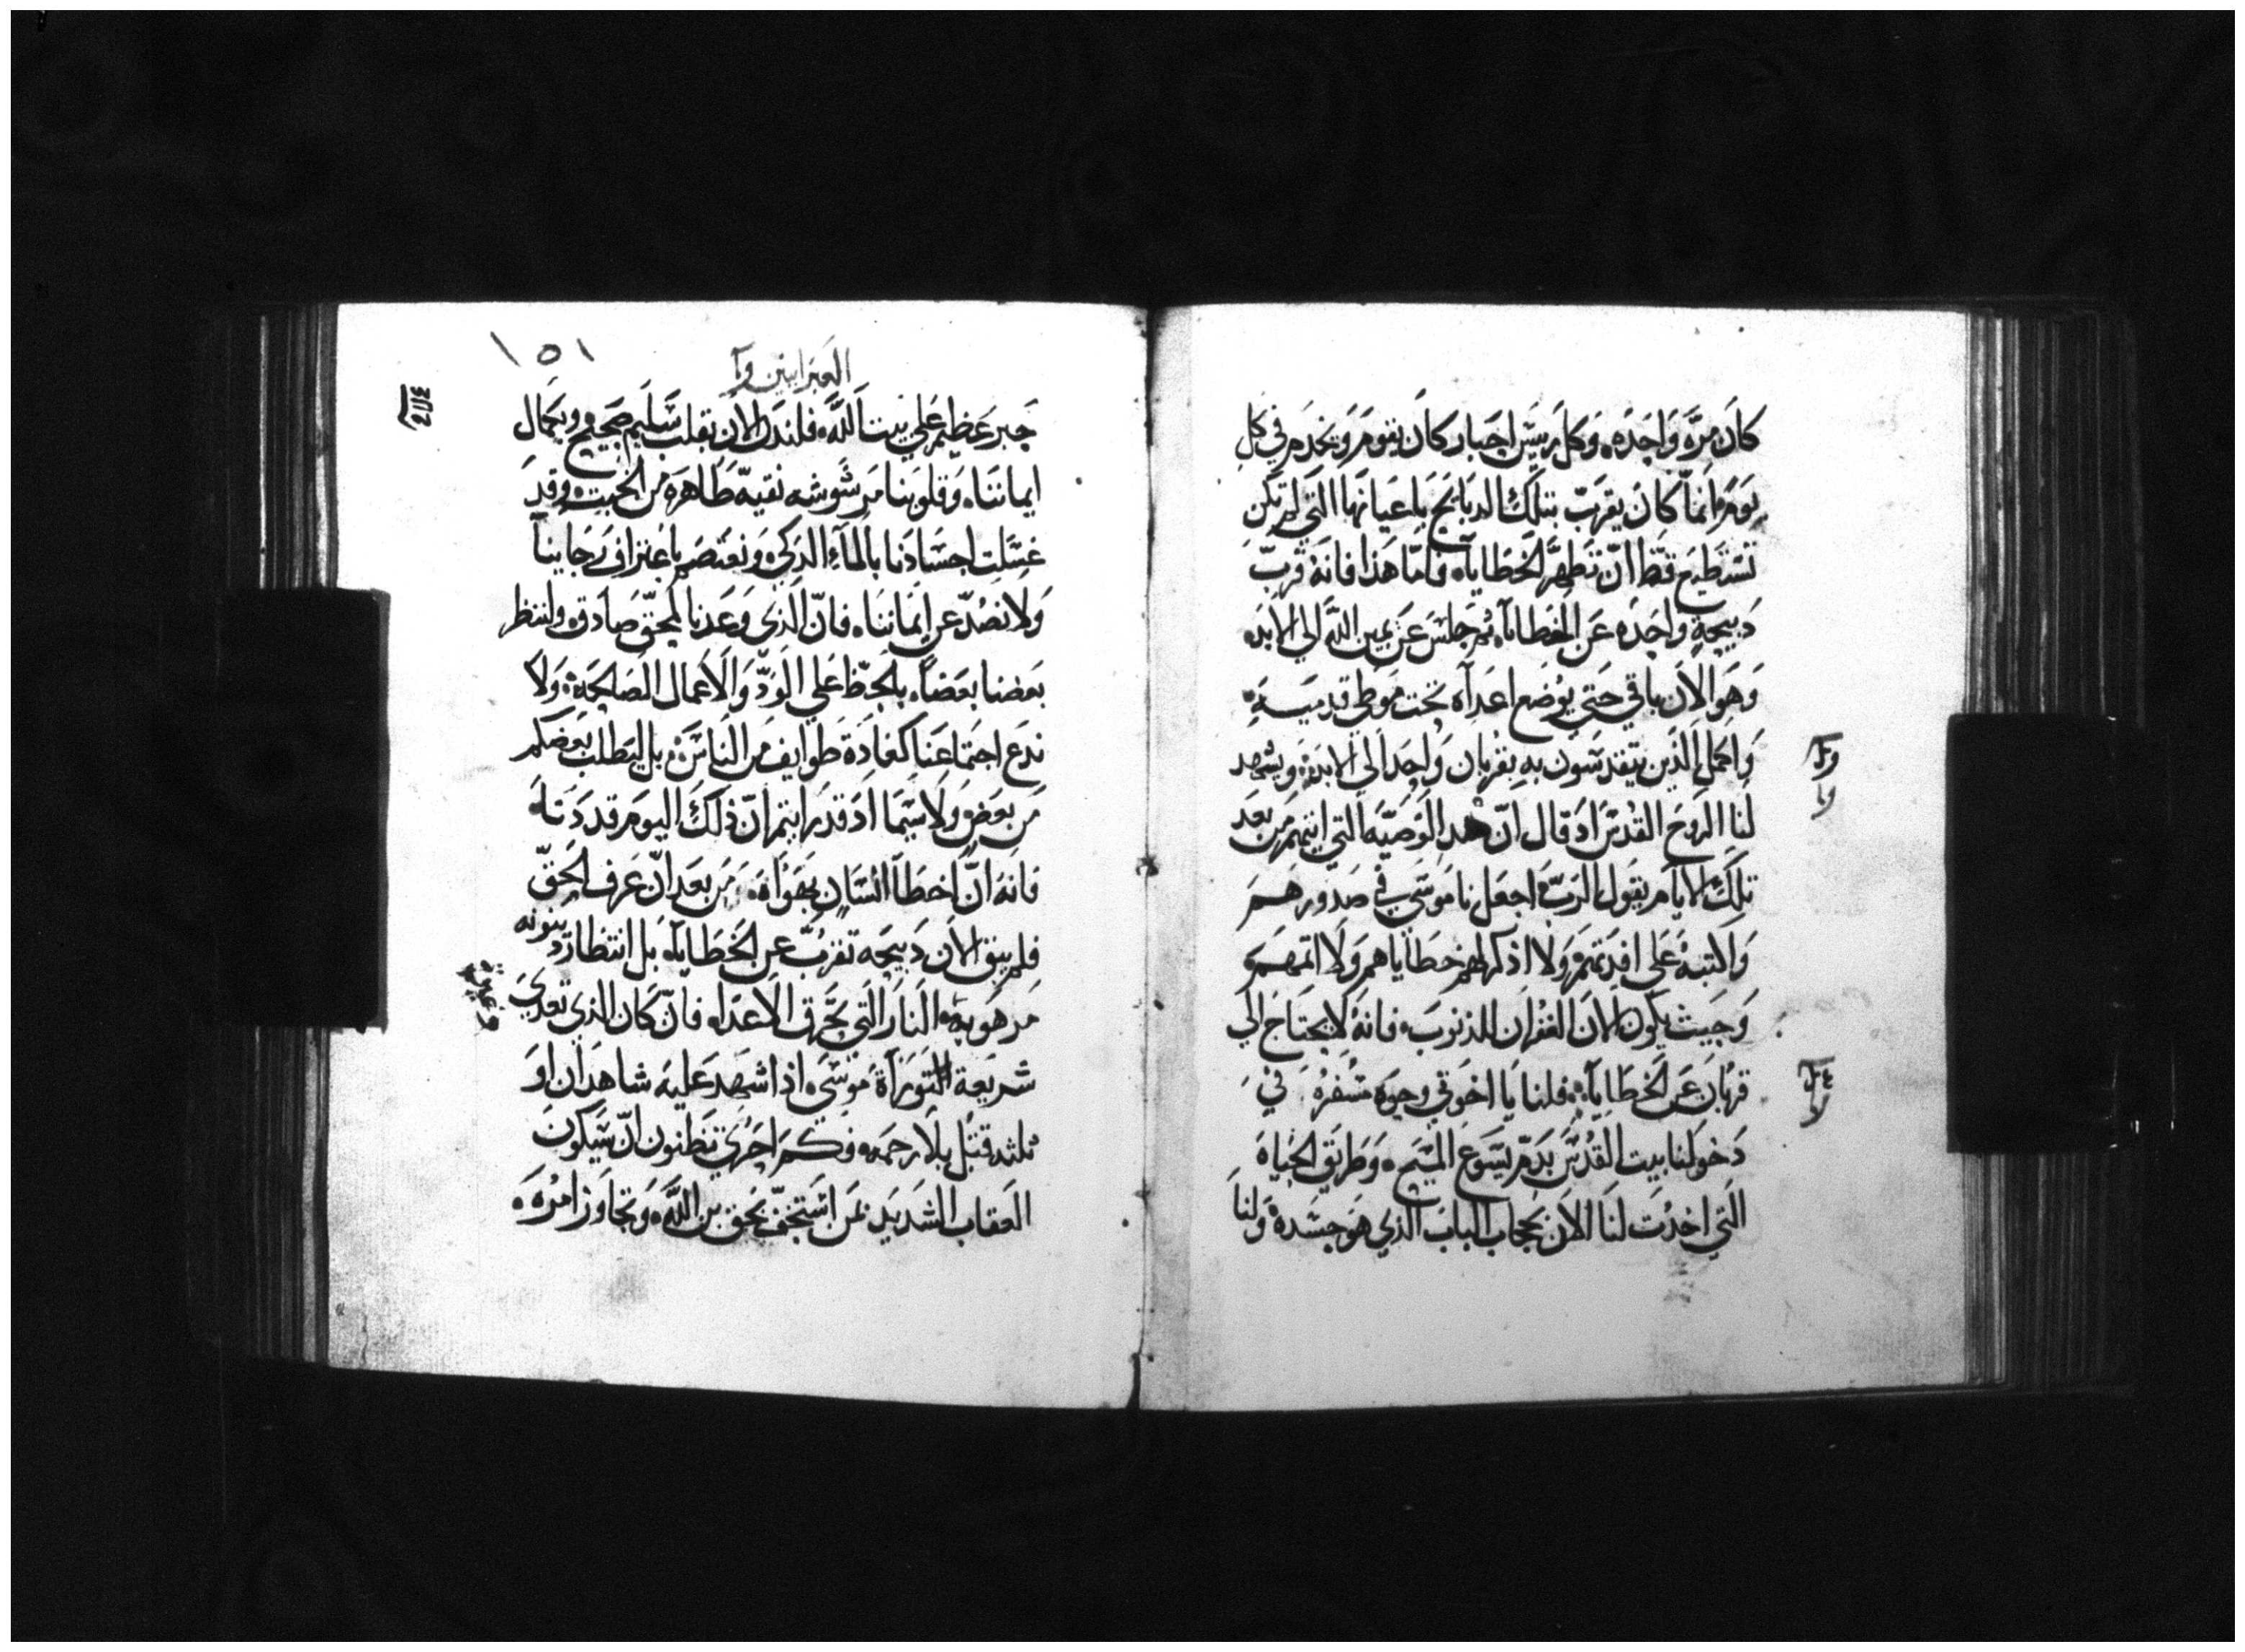 كان مرة واحده، وكل رييس احبار كان يقوم ويخدم في كل
يوم وانما كان يقرب بتلك الدبايح باعيانها التي لم تكن
تستطيع قط ان تطهر الخطايا، فاما هذا فانه قرب
دبيحة واحده عن الخطايا، ثم جلس عن يمين الله الي الابد،
وهو الان باقي حتي يوضع اعداه تحت موطي قدميه،
واكمل الذين يتقدسون به بقربان واحد الي الابد، ويشهد
لنا الروح القدس اد قال ان هده الوصيه التي اتيتهم من بعد
تلك الايام يقول الرب اجعل ناموسي في صدورهم
واكتبه علي افيدتهم ولا ادكر لهم خطاياهم ولا اتمهم
وحيث يكون الان الغفران للدنوب، فانه لا يحتاج الي
قربان عن الخطايا، فلنا يا اخوتي وجوه مسفره في
دخولنا بيت القدس بدم يسوع المسيح، وطريق الحياه
التي اخدت لنا الان بحجاب الباب الدي هو جسده ولنا
١٥١
العبرانيين
حبر عظيم علي بيت الله، فلندن الان بقلب سليم صحيح وبكمال
ايماننا، وقلوبنا مرشوشه نقيه طاهره من الخبت، وقد
غسلت اجسادنا بالماء الدكي، ونعتصم باعتراف رجاينا
ولا نصد عن ايماننا، فان الدي وعدنا لمحق صادق ولننظر
بعضنا بعضا، بالحظ علي الود والاعمال الصالحة، ولا
ندع اجتماعنا كعادة طوايف من الناس، بل ليطلب بعضكم
من بعض ولا سيما اد قد رايتم ان ذلك اليوم قد دنا،
فانه ان اخطا انسان بهواه، من بعد ان عرف الحق
فلم يبق الان دبيحه تقرب عن الخطايا، بل انتظار دينونه
مرهوبة، النار التي تحرق الاعدا، فان كان الذي تعدي
شريعة التوراة موسي، اذا شهد عليه شاهدان او
ثلثه قتل بلا رحمه، فكم احري تظنون ان سيكون
العقاب الشديد لمن استخف بحق بن الله، وتجاوز امره،